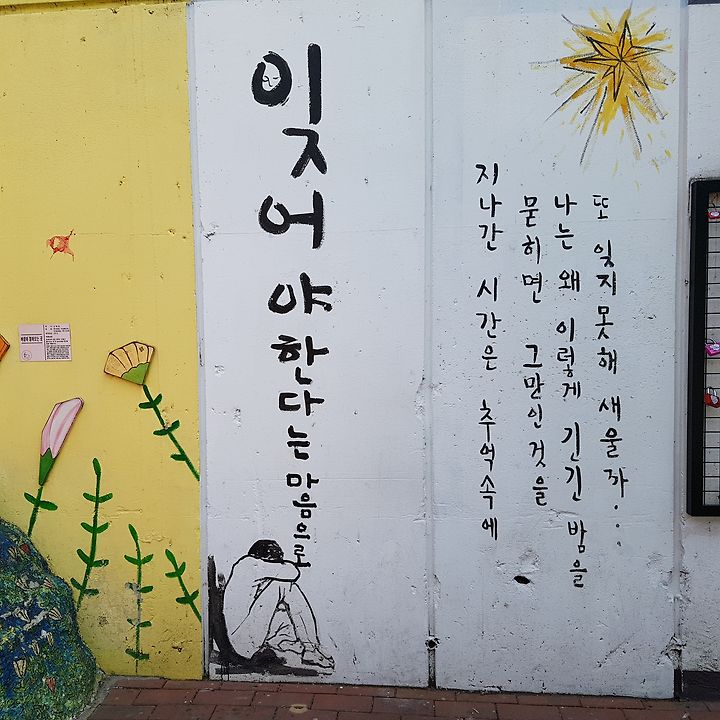 잊어야한다는마음으로
지나간 시간은 추억속에
묻히면 그만인것을
나는 왜 이렇게 긴긴 밤을
또 잊지못해 새울까...